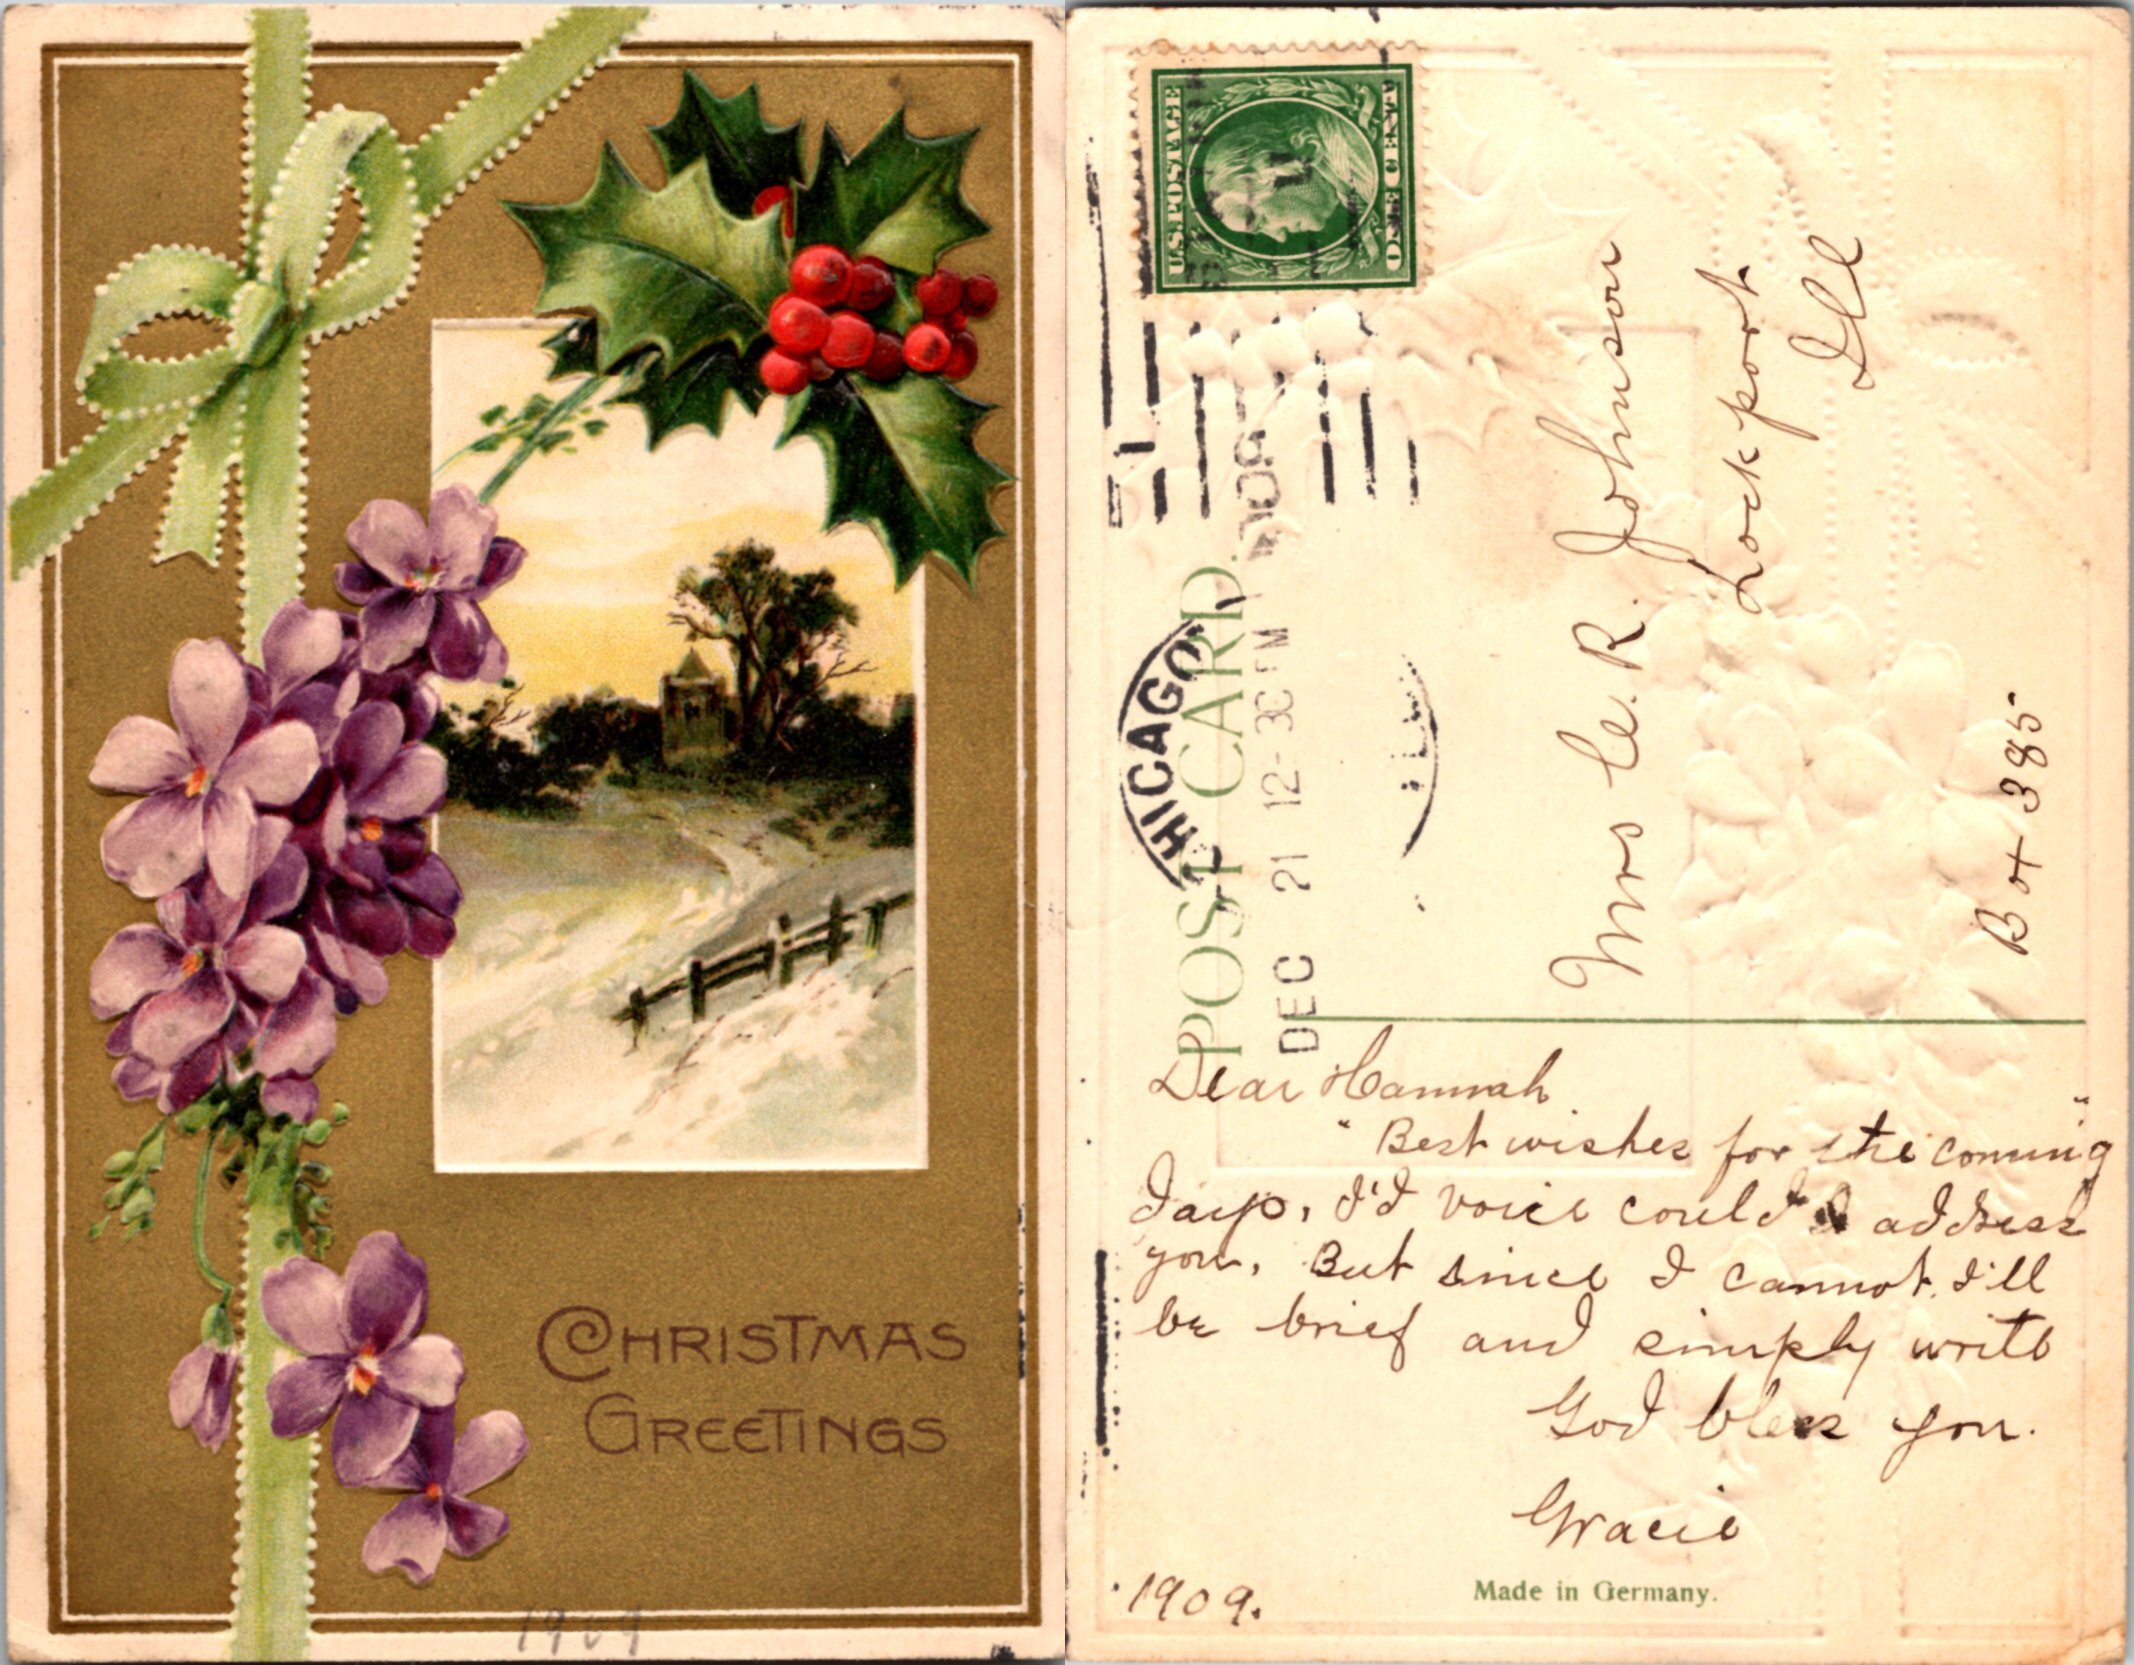 CHRISTMAS
GREETINGS
1909
U.S. POSTAGE
ONE CENT
CHICAGO, ILL.
DEC 21 12-30PM
1909
POST CARD.
Mrs C. R. Johnson
Lockport
Ill
Box 385
Dear Hannah
"Best wishes for the coming"
days, I'd voice could I address
you. But since I cannot I'll
be brief and simply write
God bless you.
Gracie
1909.
Made in Germany.